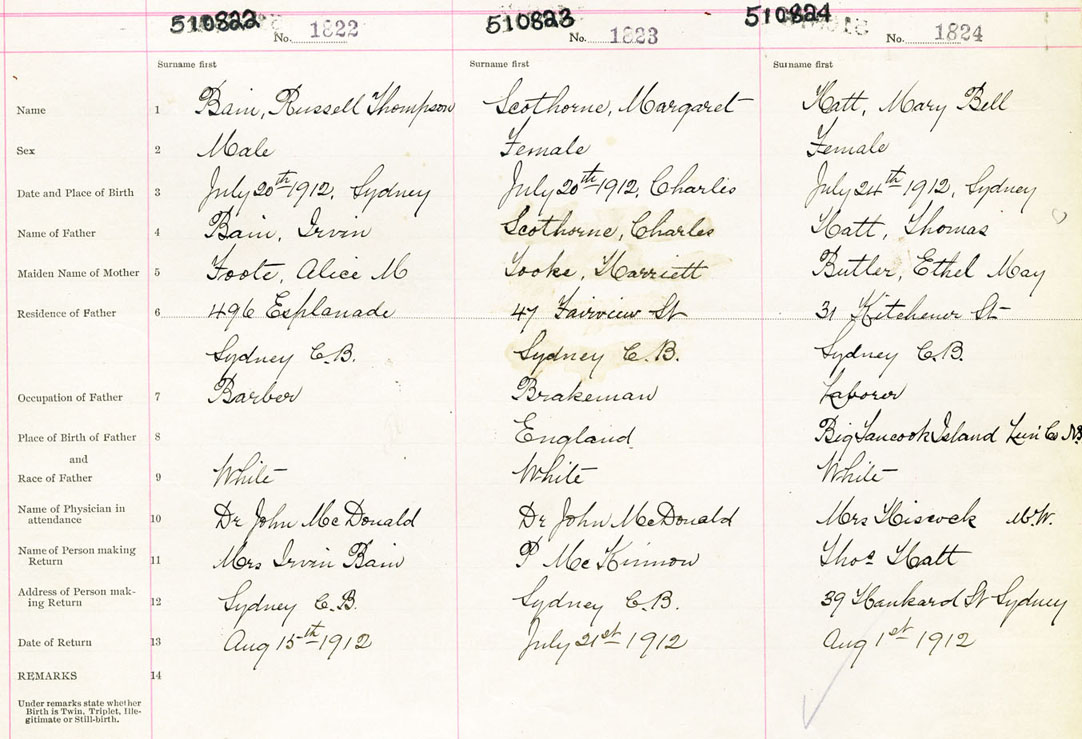 510822 510823 510824
No. 1822 No. 1823 No. 1824
Surname first Surname first Surname first
Name 1 Bain, Russell Thompson Scothorne, Margaret Hatt, Mary Bell
Sex 2 Male Female Female
Date and Place of Birth 3 July 20th 1912, Sydney July 20th 1912, Charles July 24th 1912, Sydney
Name of Father 4 Bain, Irvin Scothorne, Charles Hatt, Thomas
Maiden Name of Mother 5 Foote, Alice M Tooke, Harriett Butler, Ethel May
Residence of Father 6 496 Esplanade 47 Fairview St 31 Kitchener St
Sydney C.B. Sydney C.B. Sydney C.B.
Occupation of Father 7 Barber Brakeman Laborer
Place of Birth of Father 8 England Big Tancook Island Lun Co NS
and
Race of Father 9 White White White
Name of Physician in
attendance 10 Dr John McDonald Dr John McDonald Mrs Hiscock M.W.
Name of Person making
Return 11 Mrs Irvin Bain P McKinnon Thos Hatt
Address of Person mak-
ing Return 12 Sydney C.B. Sydney C.B. 39 Hankard St Sydney
Date of Return 13 Aug 15th 1912 July 21st 1912 Aug 1st 1912
REMARKS 14
Under remarks state whether
Birth is Twin, Triplet, Ille-
gitimate or Still-birth.